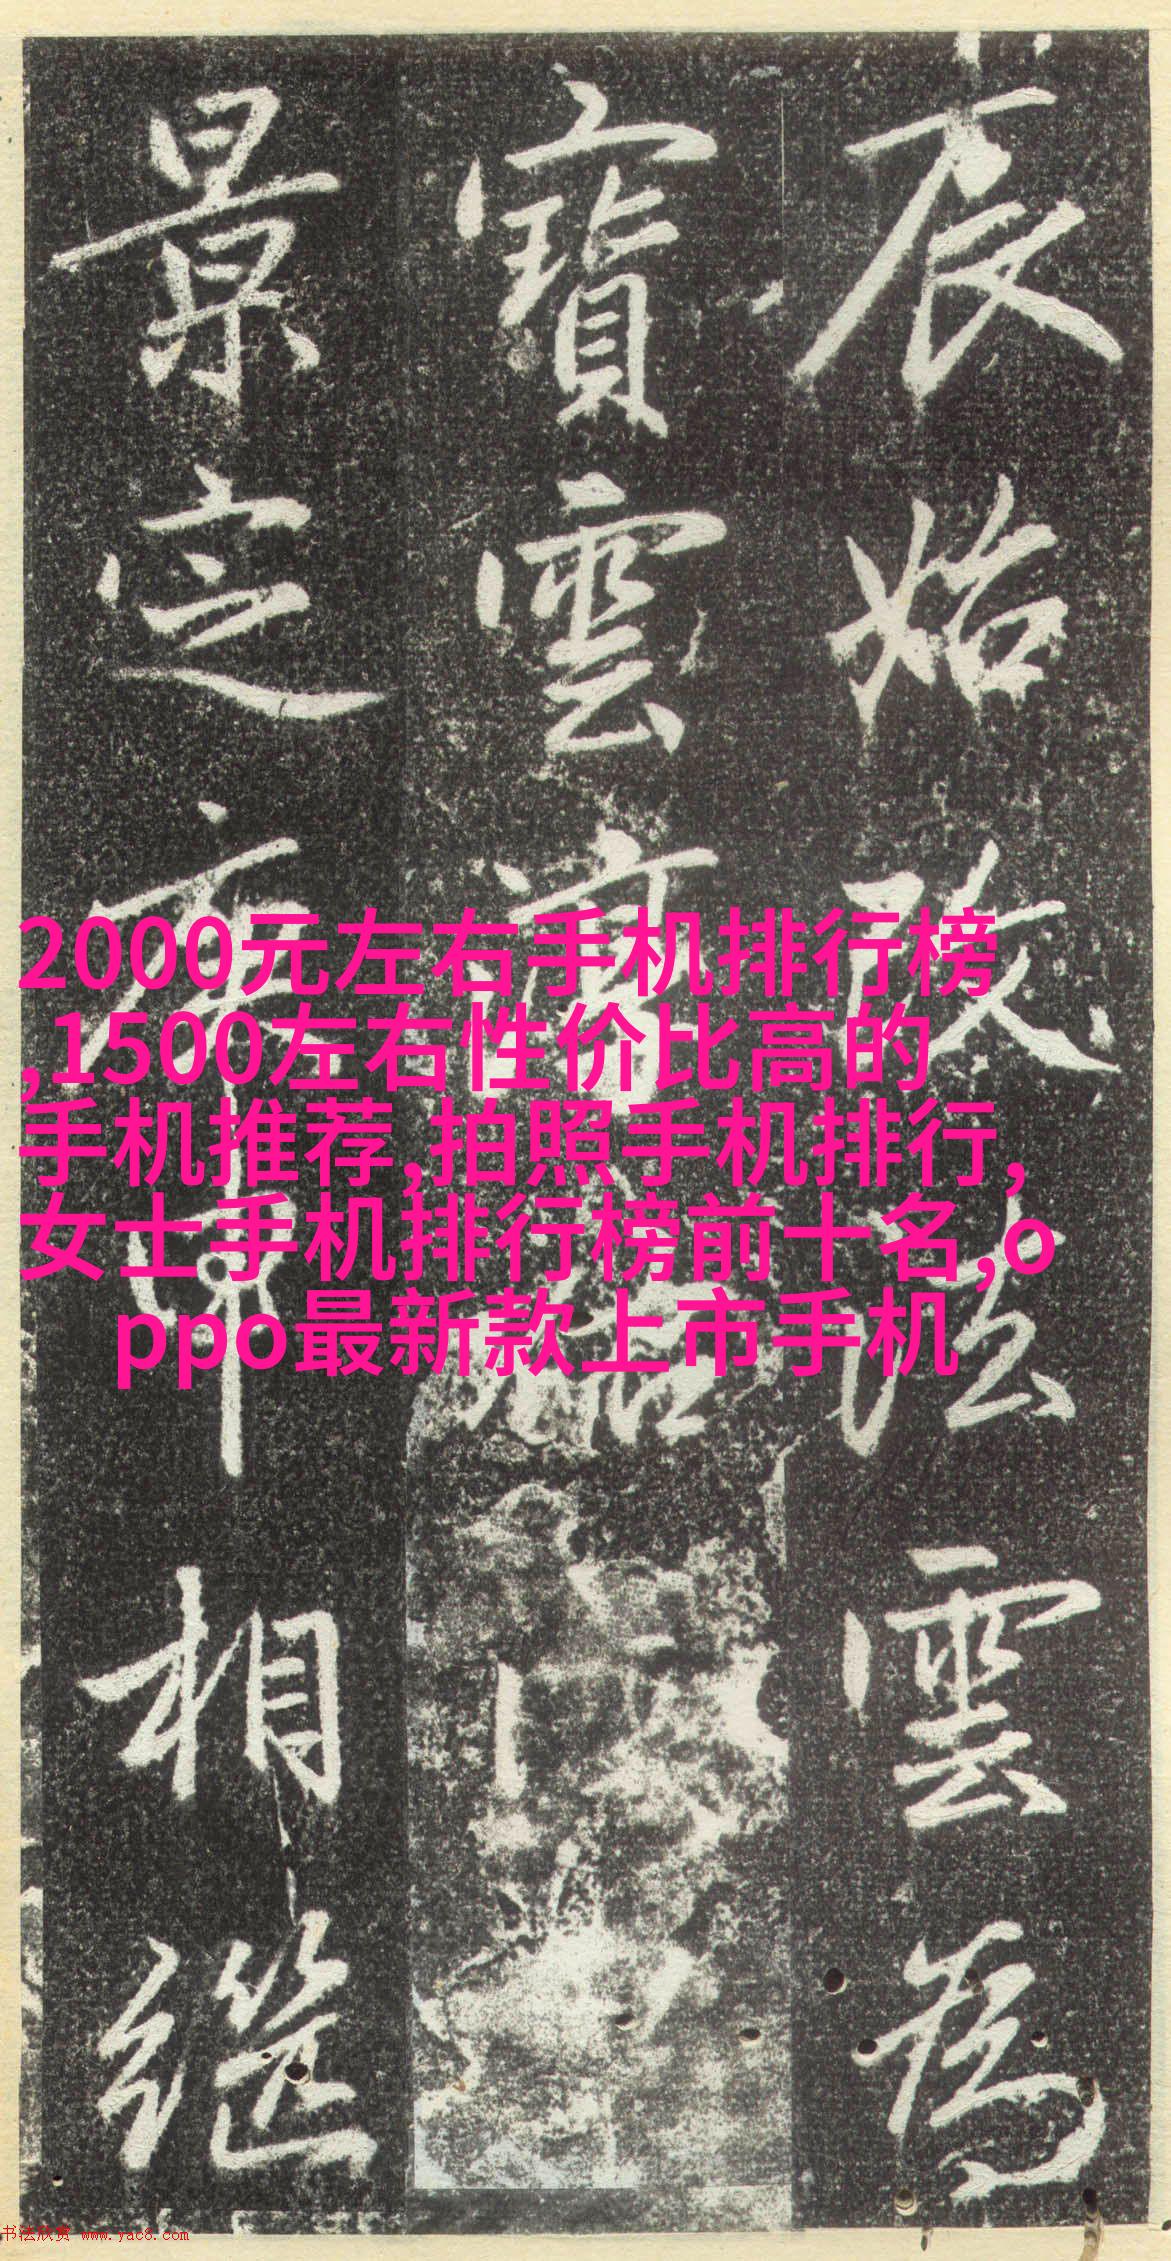 辰始改法雲為
寶雲
景定庚申相継
2000元左右手机排行榜
,1500左右性价比高的
手机推荐,拍照手机排行,
女士手机排行榜前十名,o
ppo最新款上市手机
书法欣赏 www.yac8.com